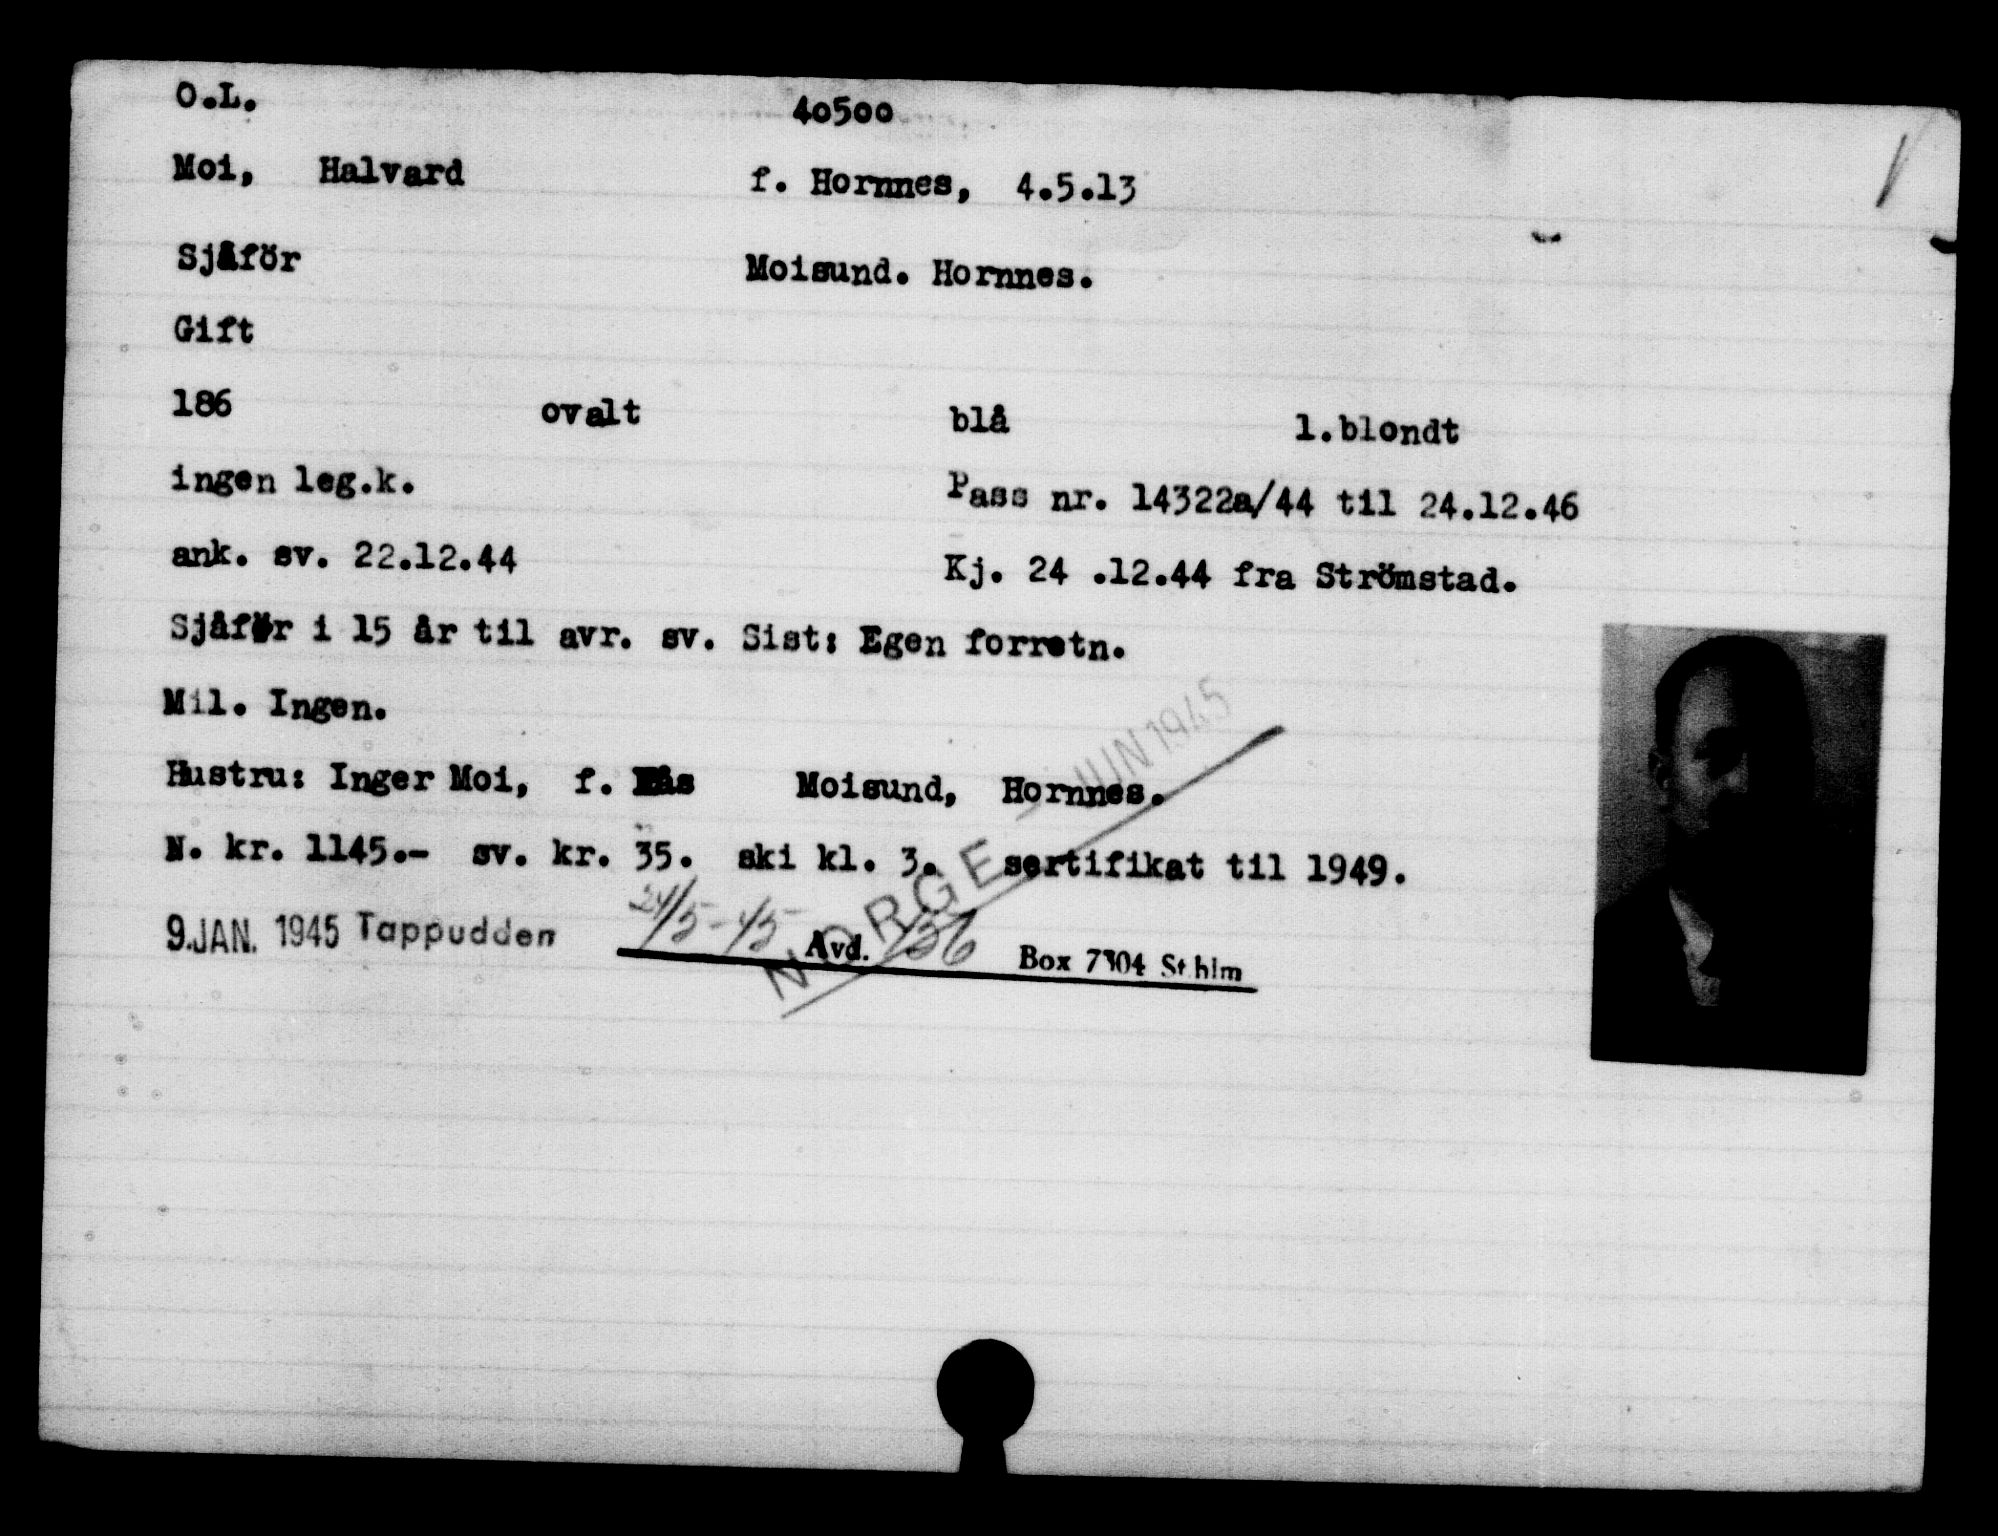 O.L. 40500
Moi, Halvard f. Hornnes, 4.5.13
Sjåför Moisund. Hornnes.
Gift
186 ovalt blå l.blondt
ingen leg.k. Pass nr. 14322a/44 til 24.12.46
ank. sv. 22.12.44 Kj. 24 .12.44 fra Strömstad.
Sjåför i 15 år til avr. sv. Sist: Egen forretn.
Mil. Ingen.
Hustru: Inger Moi, f. Moisund, Hornnes.
N. kr. 1145.- sv. kr. 35. ski kl. 3. sertifikat til 1949.
NORGE JUN 1945
9.JAN. 1945 Tappudden 24/5-45 Avd. 136 Box 7304 Sthlm